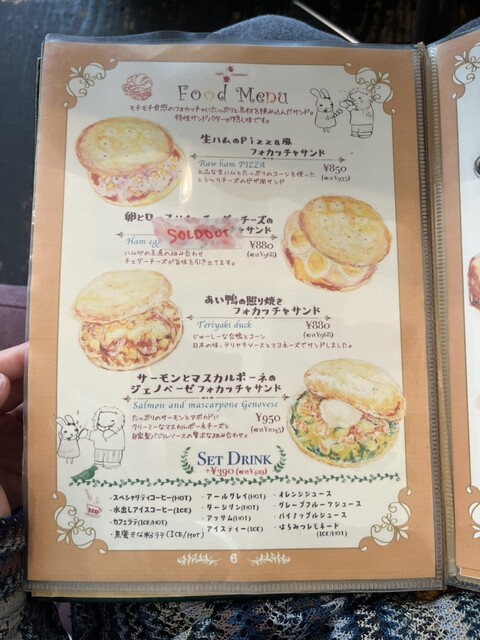 Food Menu
モチモチ食感のフォカッチャにたっぷりと具材を挟み込んだサンド。
特性サンドバターが隠し味です。
生ハムのPizza風
フォカッチャサンド
Raw ham PIZZA
¥850
上品な生ハムとたっぷりのコーンを使った
とろ〜りチーズのピザ風サンド
卵と
チーズの
SOLDOUT
カッチャサンド
Ham egg
¥880
(税込¥968)
ハムと卵の王道の組み合わせ
チェダーチーズが旨味を引き立てます。
あい鴨の照り焼き
フォカッチャサンド
Teriyaki duck
¥880
(税込¥968)
じゅーしーな合鴨とコーン
日本の味、テリヤキソースとマヨネーズでサンドしました。
サーモンとマスカルポーネの
ジェノベーゼフォカッチャサンド
Salmon and mascarpone Genovese
¥950
(税込¥1045)
たっぷりのサーモンとアボカドに
クリーミーなマスカルポーネチーズと
自家製バジルソースの贅沢な組み合わせ
SET DRINK
+¥390(税込¥429)
・スペシャリティコーヒー(HOT)
・水出しアイスコーヒー(ICE)
・カフェラテ(ICE/HOT)
・黒蜜きな粉ラテ(ICE/HOT)
・アールグレイ(HOT)
・ダージリン(HOT)
・アッサム(HOT)
・アイスティー(ICE)
・オレンジジュース
・グレープフルーツジュース
・パイナップルジュース
・はちみつレモネード
(ICE/HOT)
6